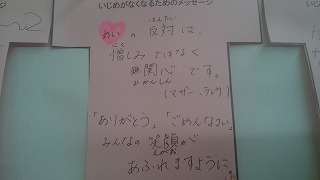 いじめがなくなるためのメッセージ
はんたい
あいの反対は、
にく
憎しみではなく
無関心です。
むかんしん
(マザー・テレサ)
「ありがとう」「ごめんなさい」
みんなの笑顔が
えがお
あふれますように